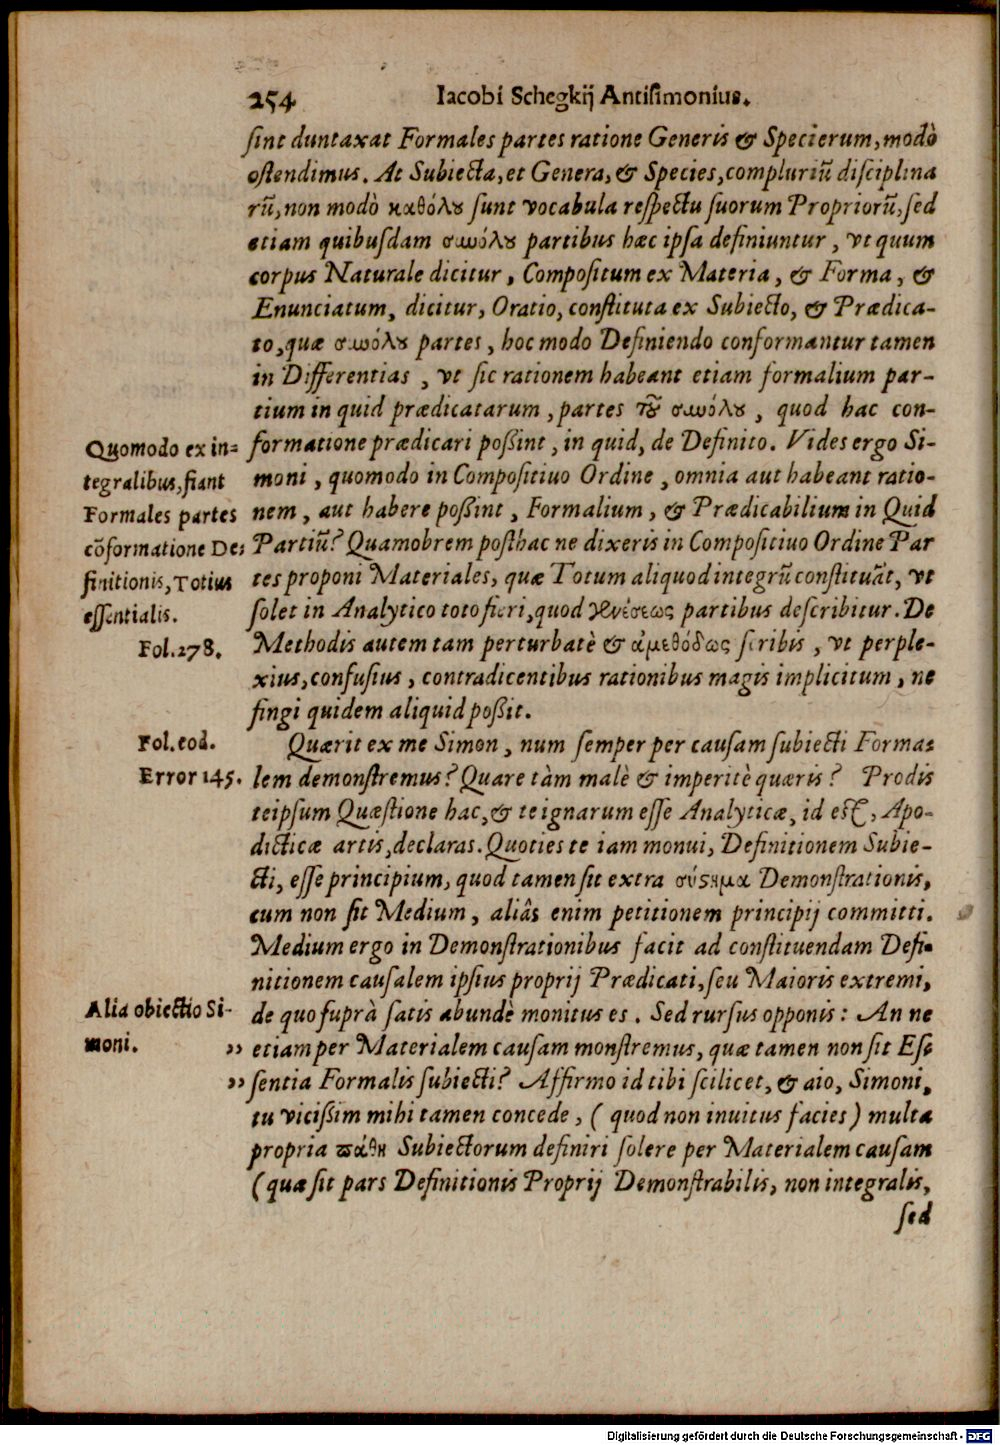 254 Iacobi Schegkij Antisimonius.
sint duntaxat Formales partes ratione Generis & Specierum, modò
ostendimus. At Subiecta, et Genera, & Species, compluriũ disciplina
rũ, non modò καθόλου sunt vocabula respectu suorum Propriorũ, sed
etiam quibusdam συνόλου partibus hæc ipsa definiuntur, vt quum
corpus Naturale dicitur, Compositum ex Materia, & Forma, &
Enunciatum, dicitur, Oratio, constituta ex Subiecto, & Prædica-
to, quæ συνόλου partes, hoc modo Definiendo conformantur tamen
in Differentias, vt sic rationem habeant etiam formalium par-
tium in quid prædicatarum, partes τοῦ συνόλου, quod hac con-
formatione prædicari poßint, in quid, de Definito. Vides ergo Si-
moni, quomodo in Compositiuo Ordine, omnia aut habeant ratio-
nem, aut habere poßint, Formalium, & Prædicabilium in Quid
Partiũ? Quamobrem posthac ne dixeris in Compositiuo Ordine Par
tes proponi Materiales, quæ Totum aliquod integrũ constituãt, vt
solet in Analytico toto fieri, quod γενέσεως partibus describitur. De
Methodis autem tam perturbatè & ἀμεθόδως scribis, vt perple-
xius, confusius, contradicentibus rationibus magis implicitum, ne
fingi quidem aliquid poßit.
Quomodo ex in-
tegralibus, fiant
Formales partes
cõformatione De-
finitionis, Totius
essentialis.
Fol. 278.
Fol. eod.
Error 145.
Quærit ex me Simon, num semper per causam subiecti Forma-
lem demonstremus? Quare tàm malè & imperitè quæris? Prodis
teipsum Quæstione hac, & te ignarum esse Analyticæ, id est, Apo-
dicticæ artis, declaras. Quoties te iam monui, Definitionem Subie-
cti, esse principium, quod tamen sit extra σύστημα Demonstrationis,
cum non sit Medium, aliâs enim petitionem principij committi.
Medium ergo in Demonstrationibus facit ad constituendam Defi-
nitionem causalem ipsius proprij Prædicati, seu Maioris extremi,
de quo suprà satis abundè monitus es. Sed rursus opponis: An ne
Alia obiectio Si-
moni.
,, etiam per Materialem causam monstremus, quæ tamen non sit Es-
,, sentia Formalis subiecti? Affirmo id tibi scilicet, & aio, Simoni,
tu vicißim mihi tamen concede, (quod non inuitus facies) multa
propria πάθη Subiectorum definiri solere per Materialem causam
(quæ sit pars Definitionis Proprij Demonstrabilis, non integralis,
sed
Digitalisierung gefördert durch die Deutsche Forschungsgemeinschaft - DFG